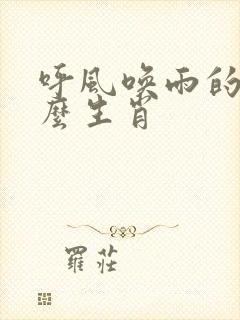 呼風喚雨的
麼生肖
羅莊